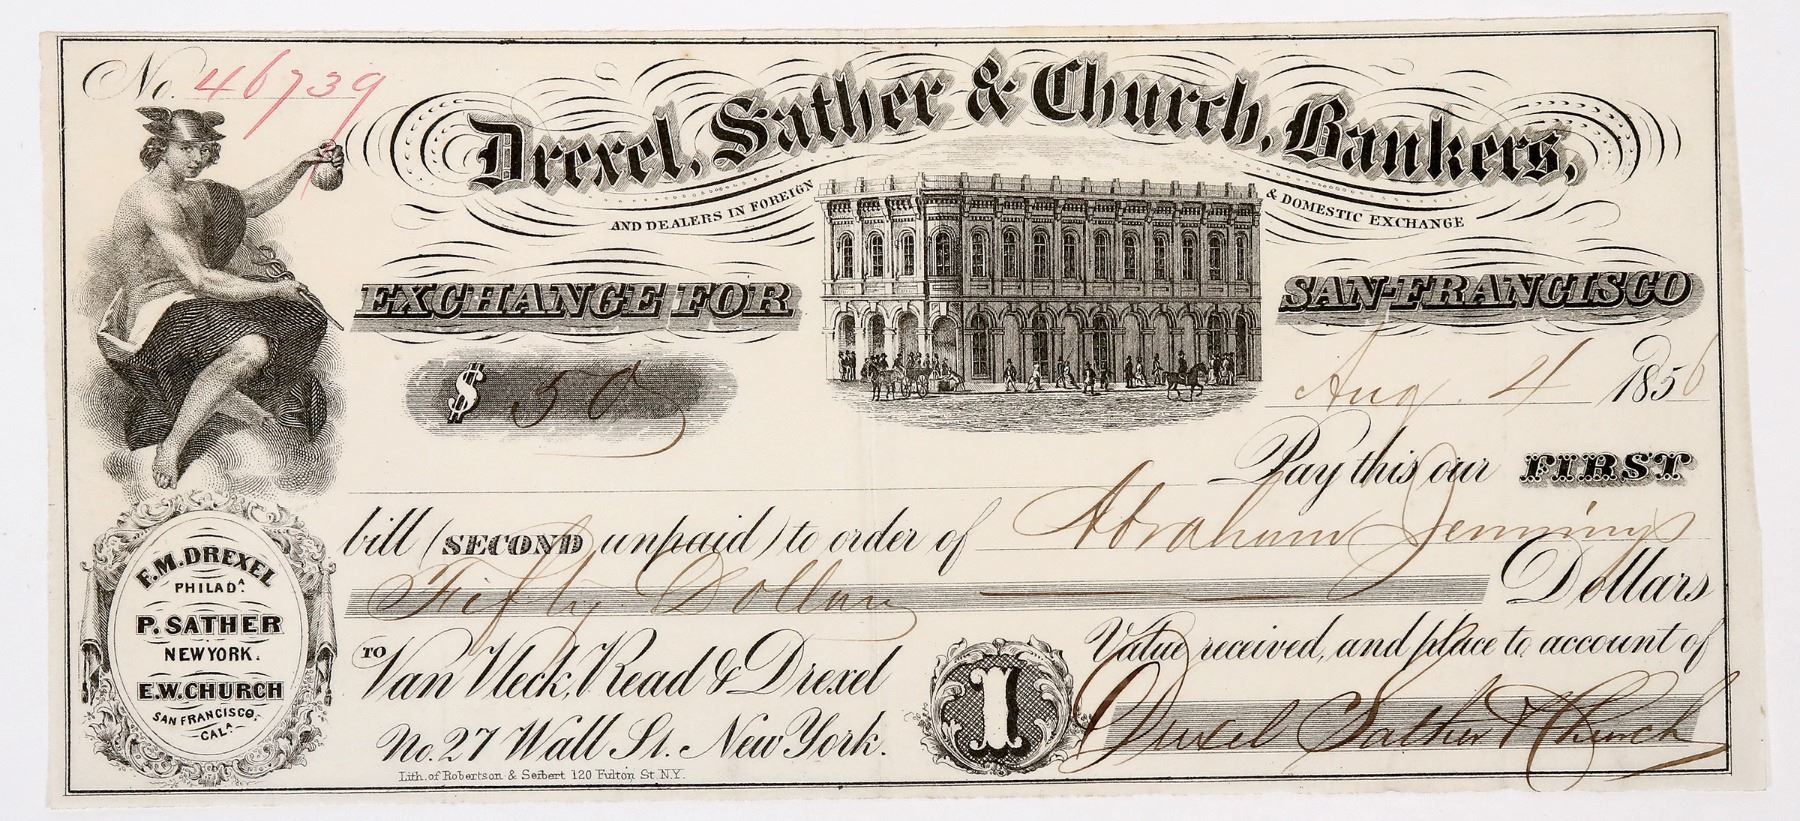 No. 46739
Drexel, Sather & Church, Bankers,
AND DEALERS IN FOREIGN & DOMESTIC EXCHANGE
EXCHANGE FOR SAN-FRANCISCO
$ 50
Aug. 4 1856
Pay this our FIRST
bill (SECOND unpaid) to order of Abraham Jennings
Fifty Dollars Dollars
Value received, and place to account of
TO Van Vleck, Read & Drexel
No. 27 Wall St. New York.
1
Drexel Sather & Church
F.M. DREXEL
PHILADA.
P. SATHER
NEW YORK.
E.W. CHURCH
SAN FRANCISCO,
CALA.
Lith. of Robertson & Seibert 120 Fulton St. N.Y.